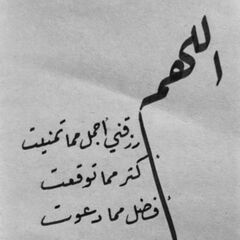 اللهم
ارزقني أجمل مما تمنيت
أكثر مما توقعت
أفضل مما دعوت